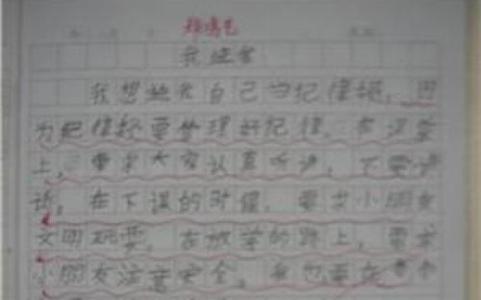 我
我想 我自己当纪律组，因
为纪律经要管理好纪律。在课堂
上，要求大家认真听讲，不要讲
话，在下课的时候，要求小朋友
文明玩耍，在放学的路上，要求
小朋友注意安全。